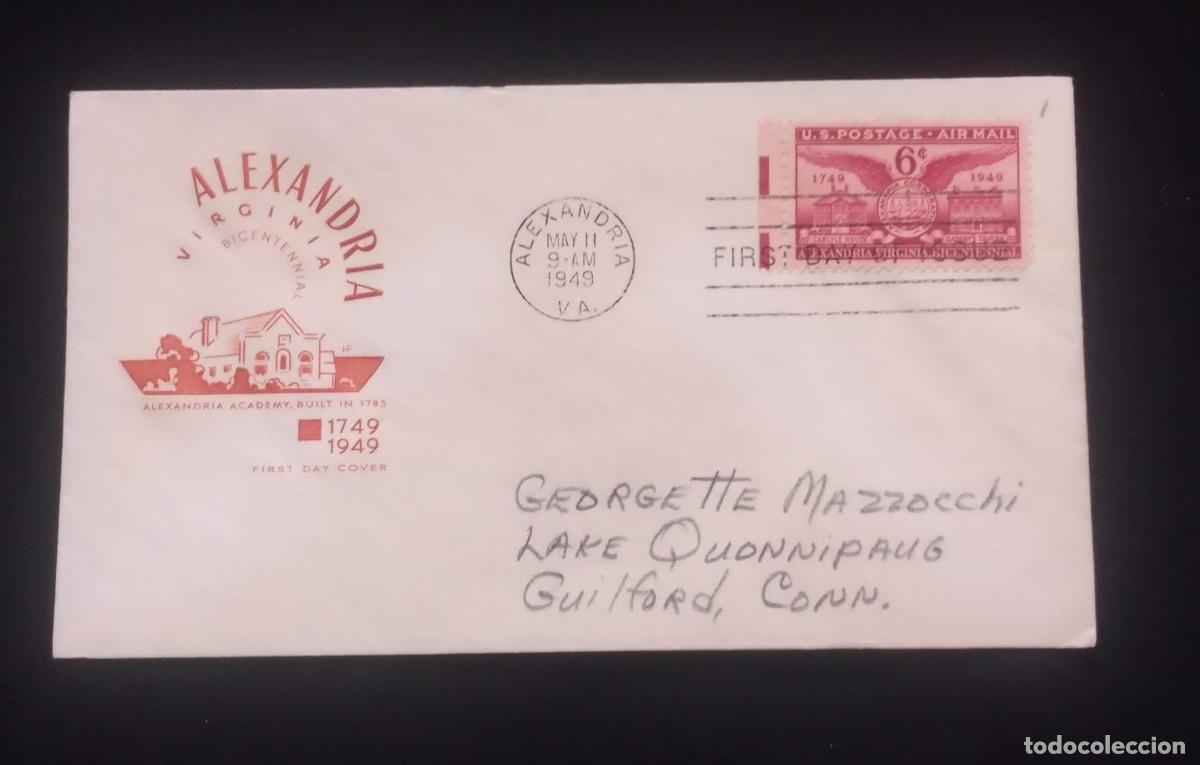 ALEXANDRIA
VIRGINIA
BICENTENNIAL
HF
ALEXANDRIA ACADEMY, BUILT IN 1785
1749
1949
FIRST DAY COVER
ALEXANDRIA
MAY 11
9-AM
1949
VA.
U.S. POSTAGE · AIR MAIL
6¢
1749 1949
CARLYLE HOUSE
ALEXANDRIA, VIRGINIA, BICENTENNIAL
FIRST DAY OF ISSUE
GEORGETTE MAZZOCCHi
LAKE QUONNIPAUG
GuilFORD, CONN.
todocoleccion